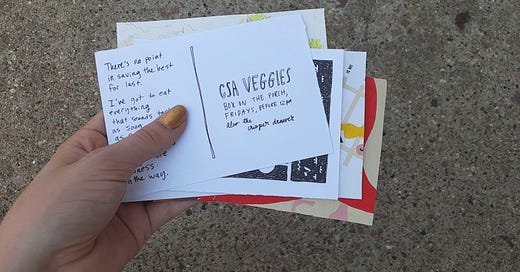 There's no point
in saving the best
for last.
I've got to eat
everything
that sounds
as soon
as
in the way.
CSA VEGGIES
BOX ON THE PORCH,
FRIDAYS, BEFORE 12PM
also the
crisper drawer